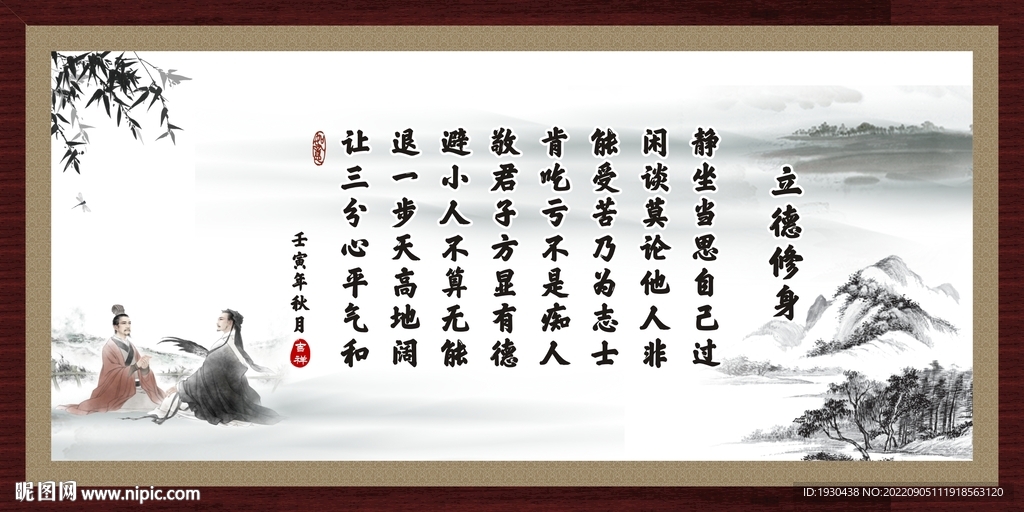 立德修身
静坐当思自己过
闲谈莫论他人非
能受苦乃为志士
肯吃亏不是痴人
敬君子方显有德
避小人不算无能
退一步天高地阔
让三分心平气和
壬寅年秋月
吉祥
昵图网 www.nipic.com
ID:1930438 NO:20220905111918563120